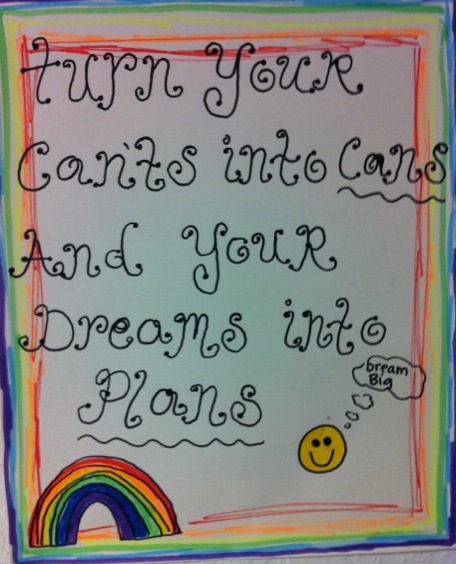 turn Your
Can'ts into Cans
And Your
Dreams into
Plans
Dream
Big